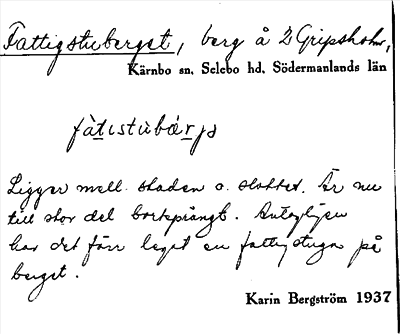 Fattigstuberget, berg å 2 Gripsholm,
Kärnbo sn, Selebo hd, Södermanlands län
fàtistùbærjə
Ligger mell. staden o. slottet. Är nu
till stor del bortsprängt. Antagligen
har det förr legat en fattigstuga på
berget.
Karin Bergström 1937